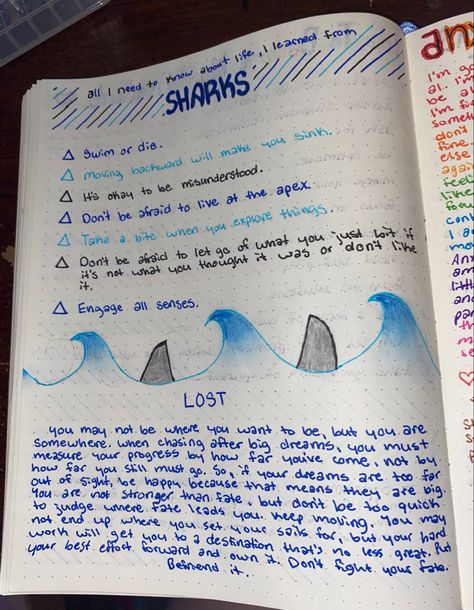 all I need to know about life, I learned from
SHARKS
Swim or die.
moving backward will make you sink.
It's okay to be misunderstood.
Don't be afraid to live at the apex.
Take a bite when you explore things.
Don't be afraid to let go of what you just bit if
it's not what you thought it was or don't like
it.
Engage all senses.
LOST
you may not be where you want to be, but you are
somewhere. when chasing after big dreams, you must
measure your progress by how far you've come, not by
how far you still must go. So, if your dreams are too far
out of sight, be happy because that means they are big.
You are not stronger than fate, but don't be too quick
to judge where fate leads you. Keep moving. You may
not end up where you set your sails for, but your hard
work will get you to a destination that's no less great. Put
your best effort forward and own it. Don't fight your fate.
Befriend it.
I'm
al. I'm
be a
I'm f
don't
fine.
else
again
feel
like
con
I a
Any
am
and